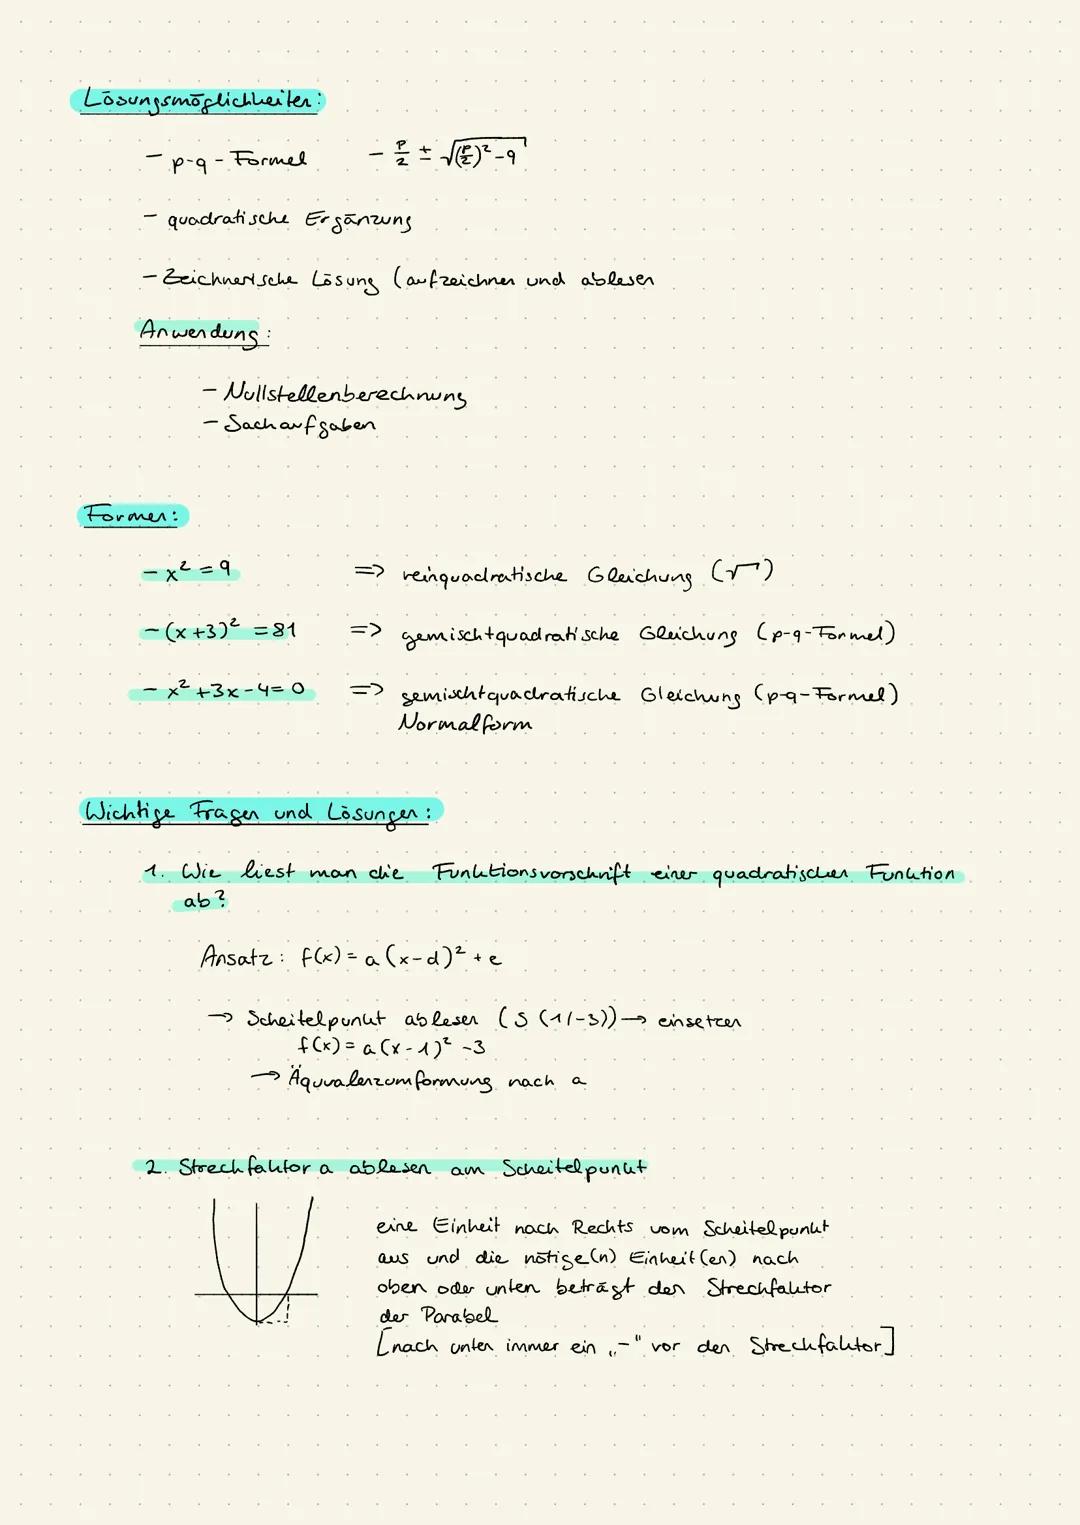 Lösungsmöglichkeiten:
- p-q-Formel - p/2 ± √((p/2)² - q)
- quadratische Ergänzung
- Zeichnerische Lösung (aufzeichnen und ablesen
Anwendung:
- Nullstellenberechnung
- Sachaufgaben
Formen:
- x² = 9 => reinquadratische Gleichung (√)
- (x+3)² = 81 => gemischtquadratische Gleichung (p-q-Formel)
- x² + 3x - 4 = 0 => gemischtquadratische Gleichung (p-q-Formel)
Normalform
Wichtige Fragen und Lösungen:
1. Wie liest man die Funktionsvorschrift einer quadratischen Funktion
ab?
Ansatz: f(x) = a (x-d)² + e
→ Scheitelpunkt ablesen (S (1/-3)) → einsetzen
f(x) = a (x-1)² -3
→ Äquvalenzumformung nach a
2. Streckfaktor a ablesen am Scheitelpunkt
eine Einheit nach Rechts vom Scheitelpunkt
aus und die nötige(n) Einheit(en) nach
oben oder unten beträgt den Streckfaktor
der Parabel
[nach unten immer ein „-" vor den Streckfaktor]